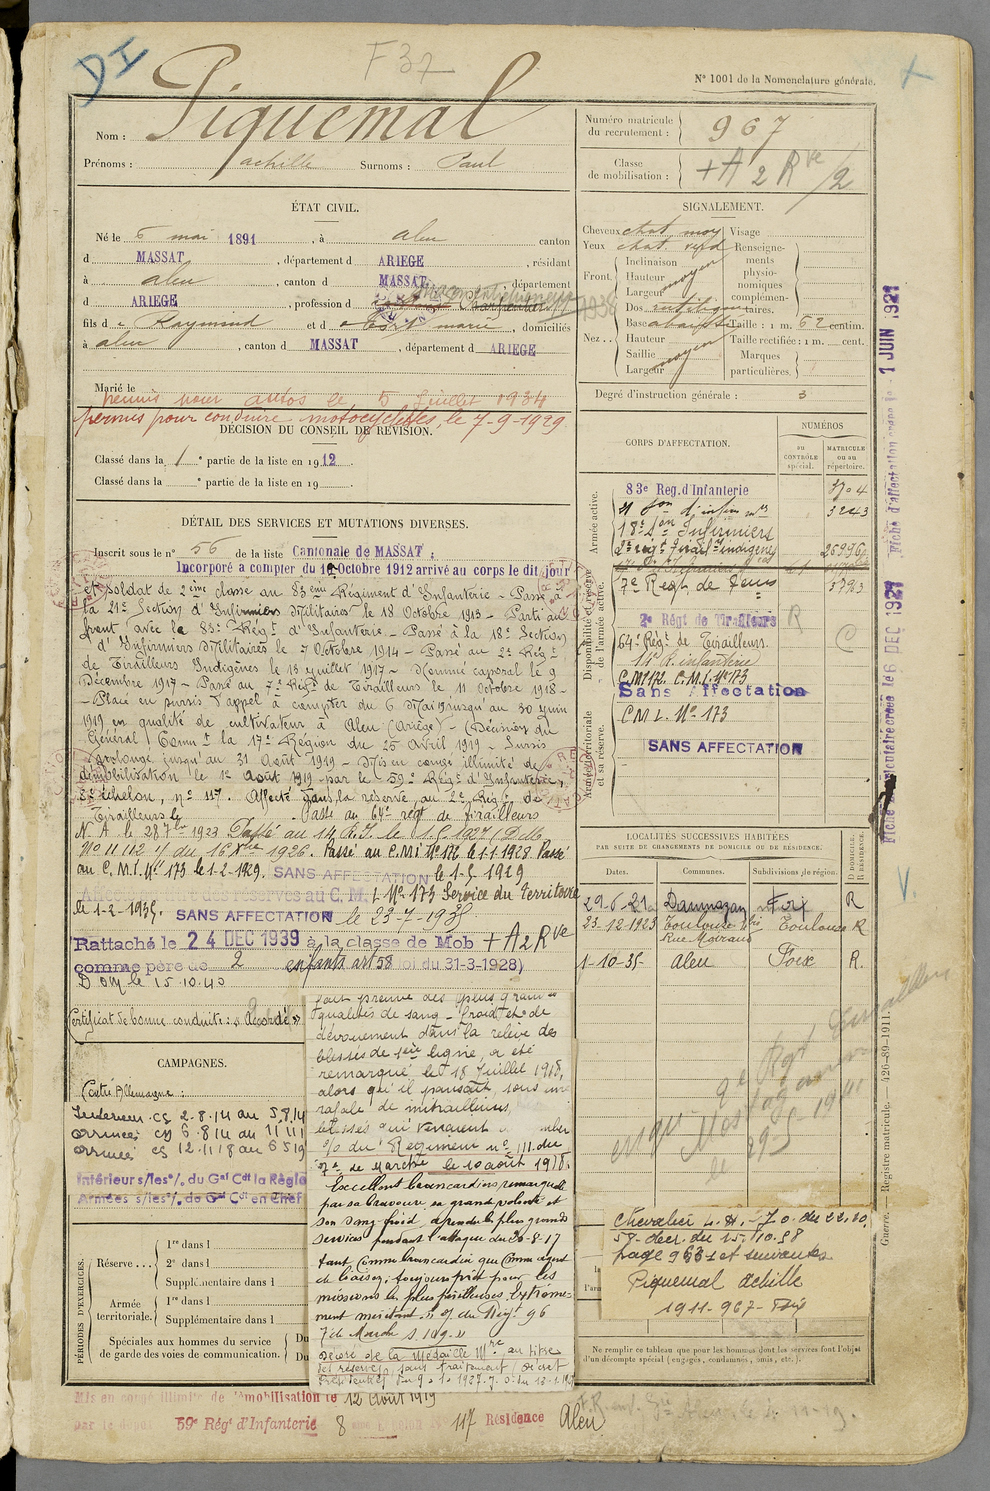 DI
F37
N° 1001 de la Nomenclature générale.
Nom : Piquemal
Prénoms : achille Surnoms : Paul
Numéro matricule du recrutement : 967
Classe de mobilisation : +A 2 Rve /2
ÉTAT CIVIL.
Né le 6 mai 1891, à aleu canton
d MASSAT, département d ARIEGE, résidant
à aleu, canton d MASSAT, département
d ARIEGE, profession d
fils de Raymond et de Fort marie, domiciliés
à aleu, canton d MASSAT, département d ARIEGE
Marié le
permis pour autos le 5 Juillet 1934
permis pour conduire motocyclettes, le 7-9-1929
SIGNALEMENT.
Cheveux chat moy Visage
Yeux chat verd Renseignements physionomiques complémentaires.
Front. Inclinaison
Hauteur moyen
Largeur
Nez. Dos rectiligne
Base abaissée Taille : 1 m. 62 centim.
Hauteur Taille rectifiée : 1 m. cent.
Saillie moyen Marques
Largeur particulières.
Degré d'instruction générale : 3
DÉCISION DU CONSEIL DE RÉVISION.
Classé dans la 1e partie de la liste en 1912.
Classé dans la e partie de la liste en 19
CORPS D'AFFECTATION.
NUMÉROS
au CONTRÔLE spécial.
MATRICULE ou au répertoire.
Armée active.
83e Reg. d'Infanterie 3704
21 Son d'infirm res 3243
18e Son Infirmiers
2e régt Tirailrs indigènes
7e Regt. de Tirrs 5793
Disponibilité et réserve de l'armée active.
2e Régt de Tirailleurs R
64e Régt de Tirailleurs. C
14e R. infanterie
C M 172. C.M.I. No 173
Sans Affectation
Armée territoriale et sa réserve.
C M I. No 173
SANS AFFECTATION
Fiche d'affectation créée le 1 JUIN 1921
Fiche matriculaire créée le 6 DEC 1927
DÉTAIL DES SERVICES ET MUTATIONS DIVERSES.
Inscrit sous le n° 56 de la liste Cantonale de MASSAT.
Incorporé a compter du 10 Octobre 1912 arrivé au corps le dit jour
et soldat de 2ème classe au 83ème Régiment d'Infanterie - Passé à
la 21e Section d'Infirmiers Militaires le 18 Octobre 1913 - Parti au
front avec le 83e Régt d'Infanterie - Passé à la 18e Section
d'Infirmiers Militaires le 7 Octobre 1914 - Passé au 2e Régt
de Tirailleurs Indigènes le 15 juillet 1917 - Nommé caporal le 9
Décembre 1917 - Passé au 7e Régt de Tirailleurs le 11 Octobre 1918 -
- Placé en sursis d'appel à compter du 6 Mai 19 jusqu'au 30 juin
1919 en qualité de cultivateur à Aleu (Ariège) - (Décision du
Général Commt la 17e Région du 25 Avril 1919 - Sursis
prolongé jusqu'au 31 Août 1919 - Mis en congé illimité de
démobilisation le 12 Août 1919 par le 59e Régt d'Infanterie,
8e échelon, n° 117. Affecté dans la réserve au 2e Régt de
Tirailleurs le Passé au 64e régt de tirailleurs
N. A. le 28 7bre 1923 Passé au 14 R.I. le
No 11112 du 16 Xbre 1926. Passé au C.M.I No 172 le 1.1.1928. Passé
au C.M.I. No 173 le 1-2-1929. SANS AFFECTATION le 1-5-1929
Affecté réserves au C.M. I. No 173 Service du Territoire
le 1-2-1935. SANS AFFECTATION le 23-7-1935.
Rattaché le 24 DEC 1939 à la classe de Mob + A2 Rve
comme père de 2 enfants art 58 loi du 31-3-1928)
le 15.10.40
Certificat de bonne conduite : « Accordé »
CAMPAGNES.
Contre Allemagne :
Intérieur CS 2.8.14 au 5.8.14
Armées CD 6.8.14 au 11 11
Armées CS 12.11 18 au 6 5 19
Intérieur s/les o/. du Gal Cdt la Région
Armées s/les o/. du Gal Cdt en Chef
fait preuve des plus grandes
qualités de sang-froid et de
dévouement dans la relève des
blessés de 1ère ligne, a été
remarqué le 18 Juillet 1918,
alors qu'il pansait sous une
rafale de mitrailleuses
blessés qui venaient
o/o du Régiment n° 111. du
7e de marche le 10 août 1918.
Excellent brancardier remarquable
par sa bravoure, sa grande volonté et
son sang froid, a rendu les plus grands
services pendant l'attaque du 20-8-17
tant comme brancardier que comme agent
de liaison ; toujours prêt pour les
missions les plus périlleuses. Extrême-
ment méritant. o/ du Régt 96
7e de Marche
Décoré de la Médaille Mre au titre
des réserves, sans traitement. (Décret
LOCALITÉS SUCCESSIVES HABITÉES
PAR SUITE DE CHANGEMENTS DE DOMICILE OU DE RÉSIDENCE.
Dates. Communes. Subdivisions de région. D DOMICILE. R RÉSIDENCE.
29-6-21 Daumazan Foix R
23-12-1923 Toulouse Toulouse R
1-10-35 Aleu Foix R.
PÉRIODES D'EXERCICES.
Réserve
1re dans l
2e dans l
Supplémentaire dans l
Armée territoriale.
1re dans l
Supplémentaire dans l
Spéciales aux hommes du service de garde des voies de communication.
Du
Du
Chevalier L. H. - J.O. du 22.10.
58 - décr. du 15.10.58
page 9631 et suivantes
Piquemal Achille
1911-967- Foix
Ne remplir ce tableau que pour les hommes dont les services font l'objet
d'un décompte spécial (engagés, condamnés, omis, etc.).
Guerre. — Registre matricule. — 426-89-1911.
Mis en congé illimité de démobilisation le 12 Août 1919
par le dépôt 59e Régt d'Infanterie 8 117 Résidence Aleu